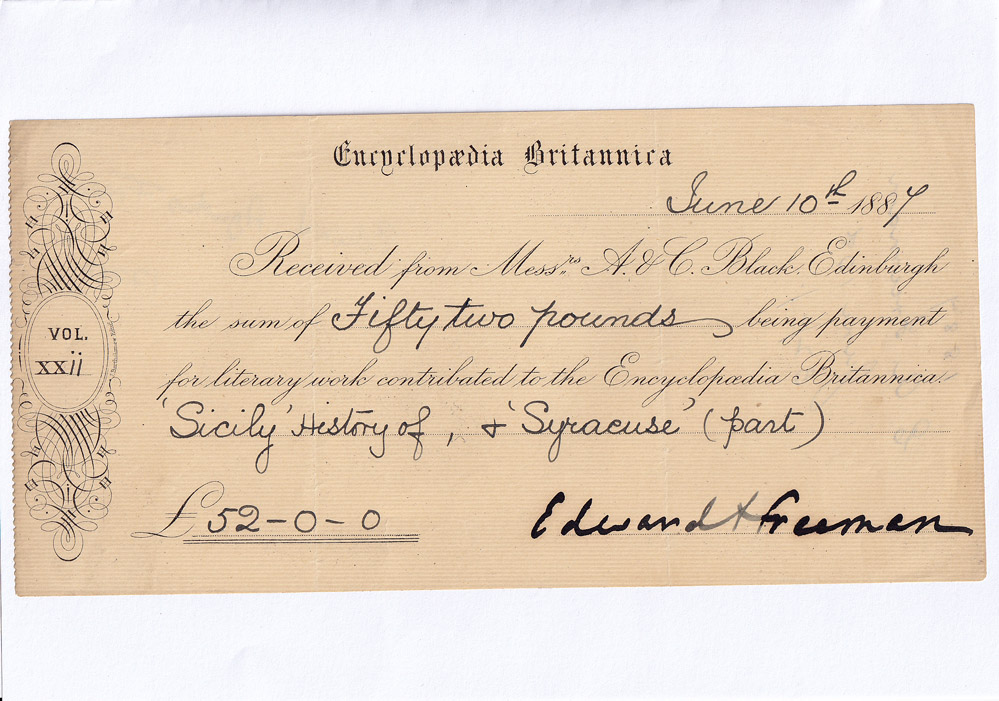 Encyclopædia Britannica
June 10th 1887
Received from Messrs A. & C. Black, Edinburgh
the sum of Fifty two pounds being payment
for literary work contributed to the Encyclopædia Britannica.
'Sicily' History of, & 'Syracuse' (part)
£52-0-0
Edward A Freeman
VOL.
XXii